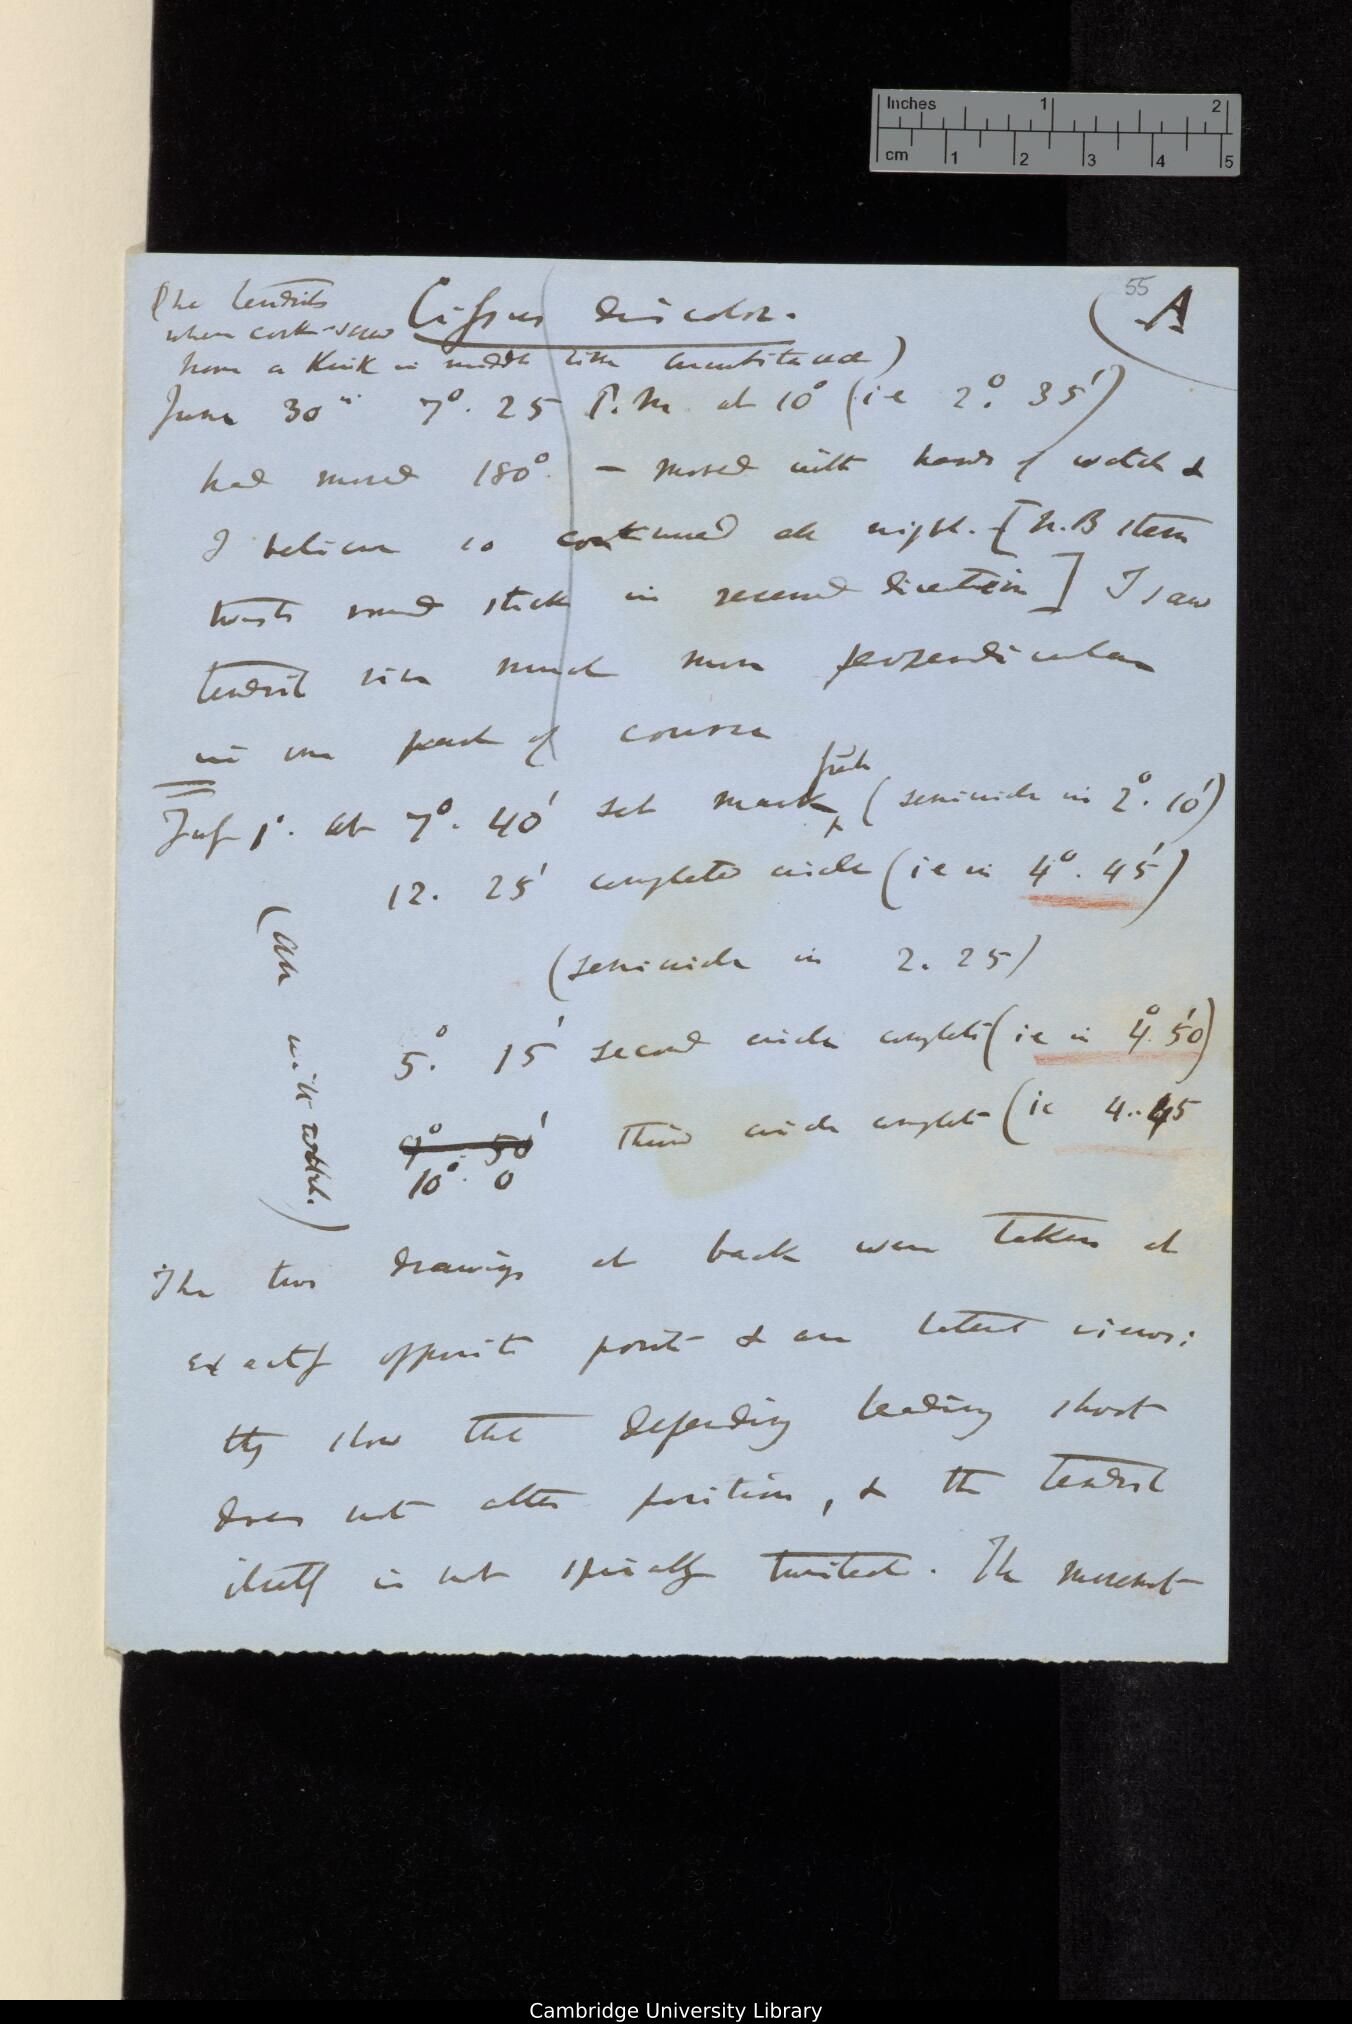 Inches 1 2
cm 1 2 3 4 5
55
A
(The tendrils
when cork-screw
Cissus discolor.
have a kink in middle like cucurbitaceæ)
June 30th 7°. 25 P.M at 10° (ie 2°. 35')
had moved 180°. — moved with hands of watch &
I believe so continued all night. [N.B stem
twists round stick in reversed direction] I saw
tendril rise much more perpendicular
in one part of course
July 1°. at 7°. 40' set mark fresh (semicircle in 2°. 10')
12. 25' completed circle (ie in 4°. 45')
(semicircle in 2. 25)
5°. 15' second circle complete (ie in 4°. 50')
9° 50' third circle complete (ie 4..45
10°. 0
(All with watch.)
The two drawings at back were taken at
exactly opposite points & are lateral views;
they show that the depending leading shoot
does not alter position, & the tendril
itself is not spirally twisted. The movement
Cambridge University Library